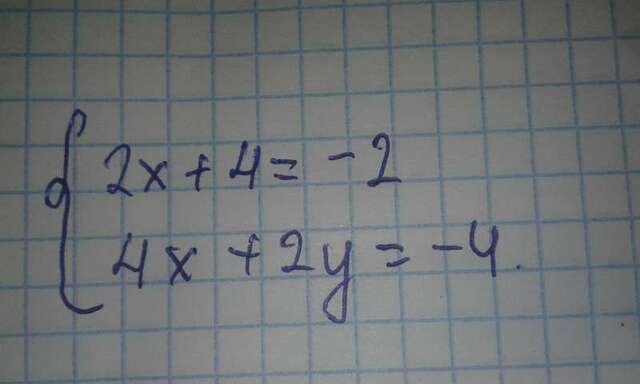 2x + 4 = -2
4x + 2y = -4.